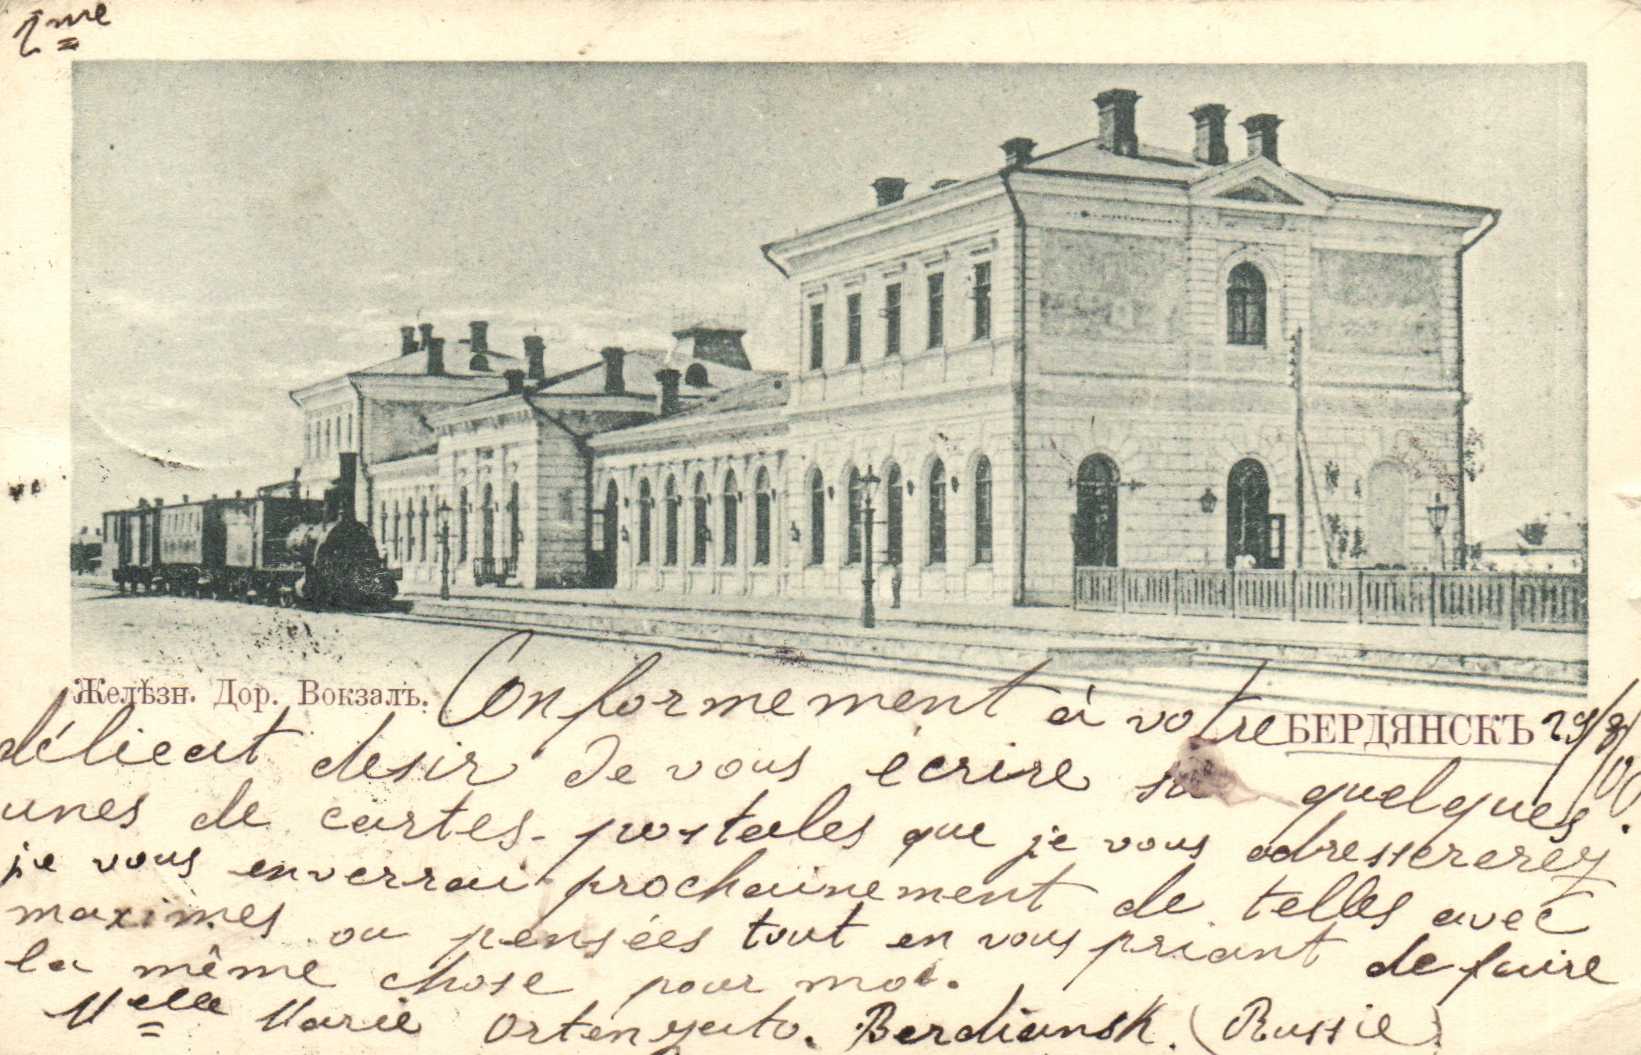 2me
Желѣзн. Дор. Вокзалъ.
Conformement à votre БЕРДЯНСКЪ 29/8/00.
délicat desir de vous écrire su quelques
unes de cartes-postales que je vous adresserez
je vous enverrai prochainement de telles avec
maximes ou pensées tout en vous priant de faire
la même chose pour moi.
Melle Marie Berdiansk. (Russie)